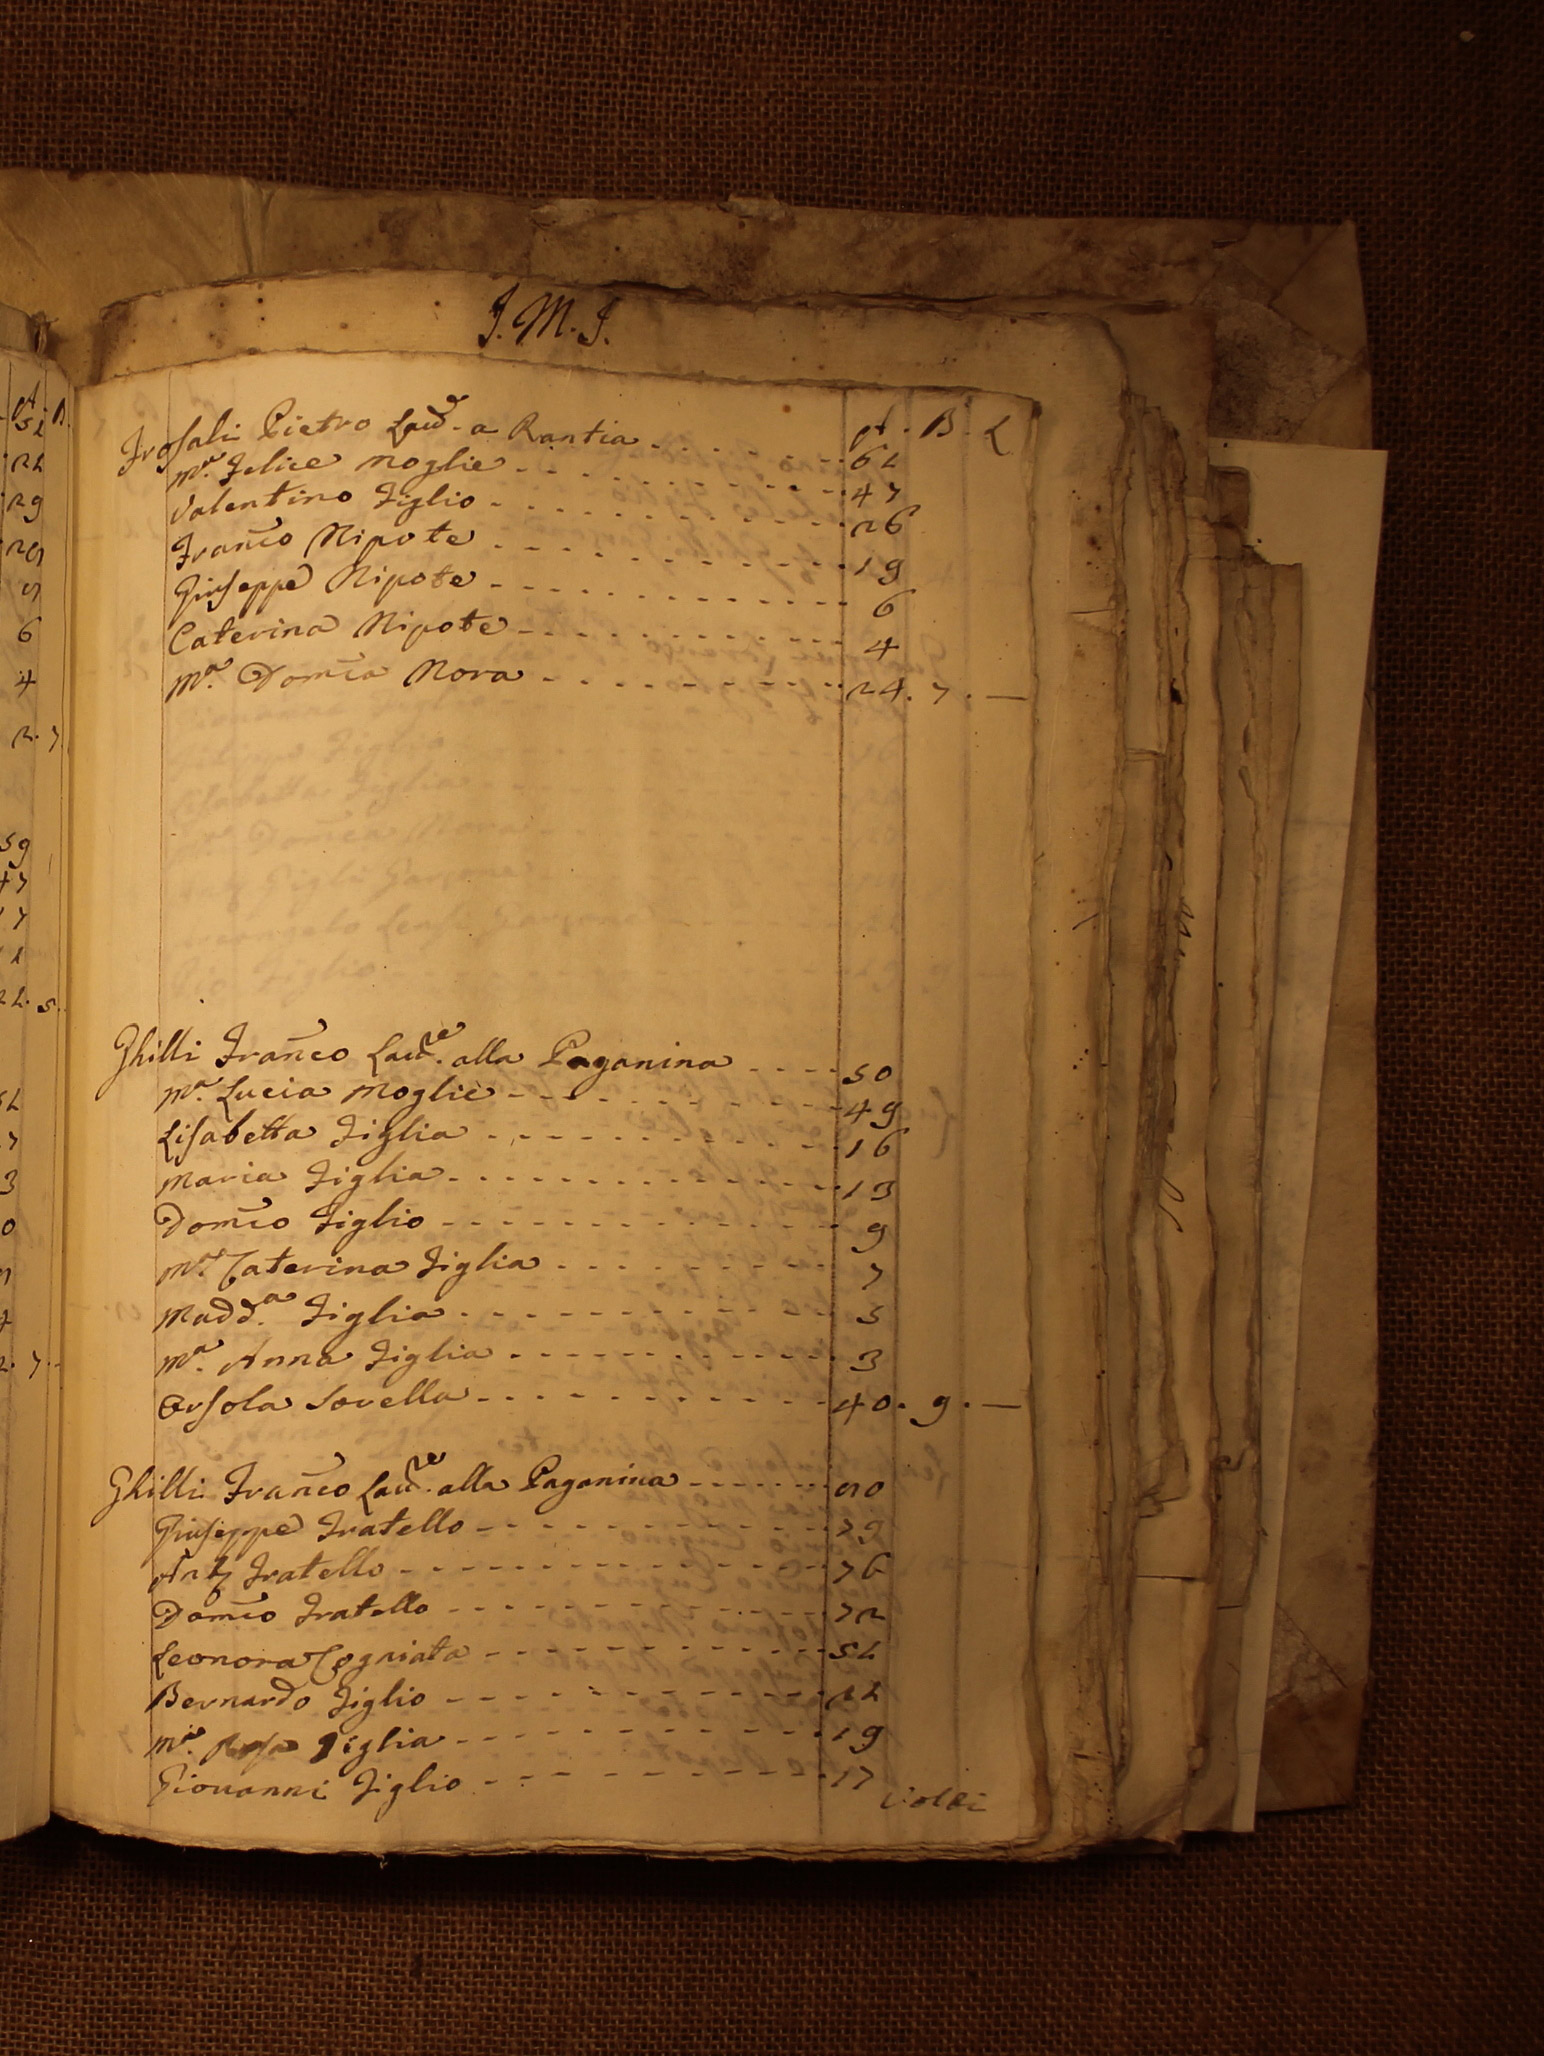 J. M. J.
et . B . L
Frosali Pietro Laude a Rantia - - - - - - 62
Ma. Felice moglie - - - - - - - - 47
Valentino Figlio - - - - - - - - 26
Franco Nipote - - - - - - - - 19
Giuseppe Nipote - - - - - - - - 6
Caterina Nipote - - - - - - - - 4
Ma. Domca Nora - - - - - - - - 24. 7. —
Ghilli Franco Laure. alla Paganina - - - - 50
Ma. Lucia moglie - - - - - - - - 49
Lisabetta Figlia - - - - - - - - 16
Maria Figlia - - - - - - - - 13
Domco Figlio - - - - - - - - 9
Ma. Caterina Figlia - - - - - - - - 7
Madda. Figlia - - - - - - - - 5
Ma. Anna Figlia - - - - - - - - 3
Orsola Sorella - - - - - - - - 40. 9. —
Ghilli Franco Laure. alla Paganina - - - - - - 80
Giuseppe Fratello - - - - - - - - 79
Anto Fratello - - - - - - - - 76
Domco Fratello - - - - - - - - 72
Leonora Cogniata - - - - - - - - 52
Bernardo Figlio - - - - - - - - 22
Ma. Rosa Figlia - - - - - - - - 19
Giovanni Figlio - - - - - - - - 17
Volti